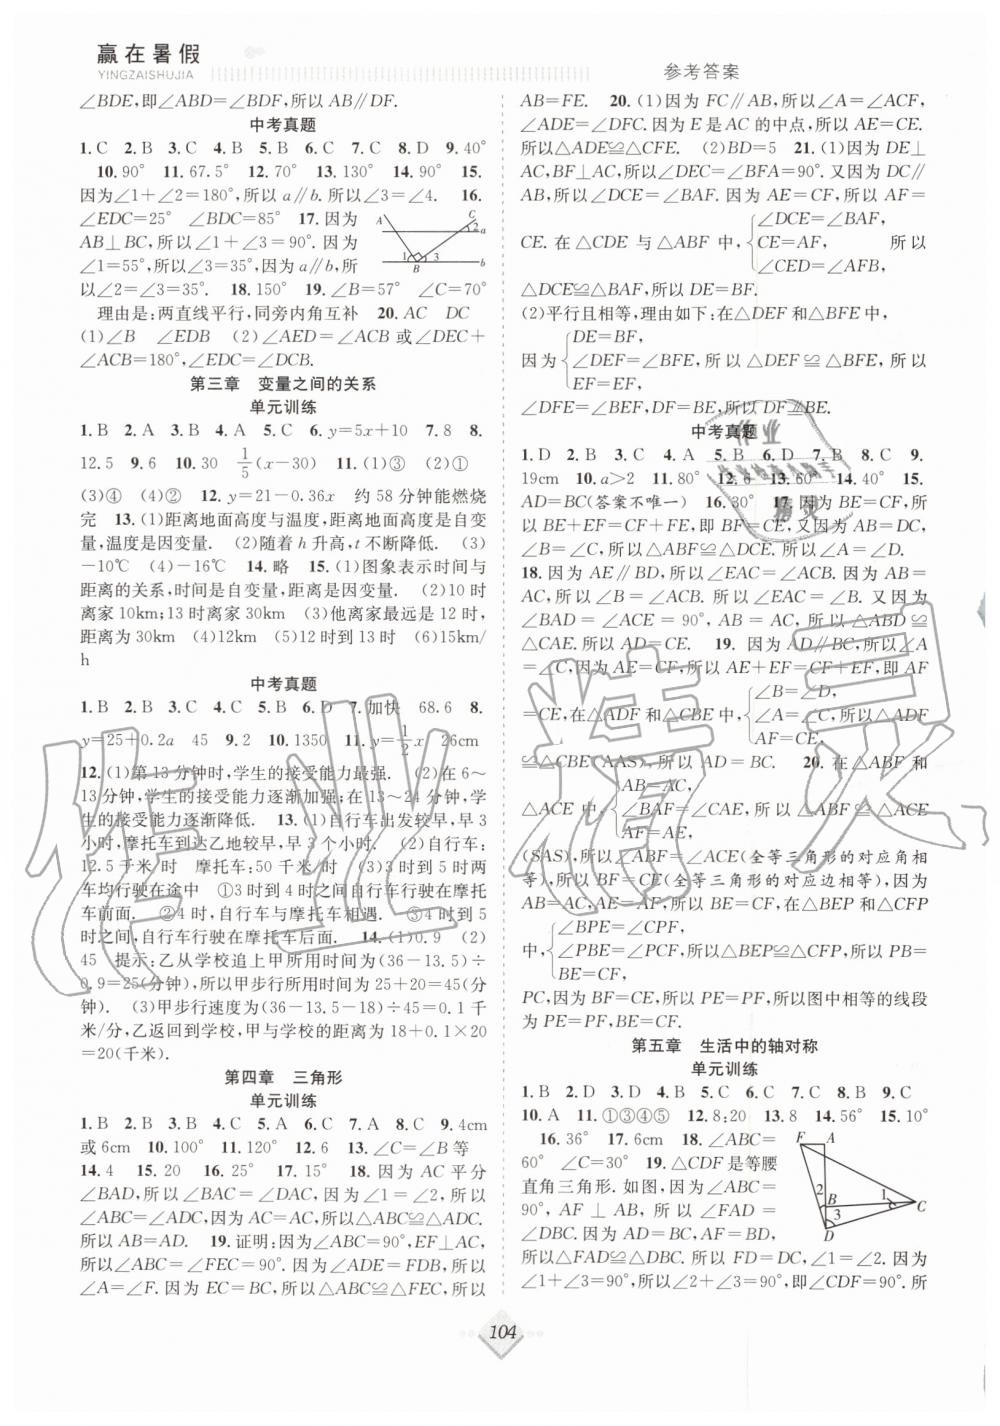 赢在暑假
YINGZAISHUJIA
参考答案
∠BDE,即∠ABD=∠BDF,所以AB∥DF.
中考真题
1.C 2.B 3.C 4.B 5.B 6.C 7.C 8.D 9.40°
10.90° 11.67.5° 12.70° 13.130° 14.90° 15.
因为∠1+∠2=180°,所以a∥b.所以∠3=∠4. 16.
∠EDC=25° ∠BDC=85° 17.因为
AB⊥BC,所以∠1+∠3=90°.因为
∠1=55°,所以∠3=35°,因为a∥b,所
以∠2=∠3=35°. 18.150° 19.∠B=57° ∠C=70°
理由是:两直线平行,同旁内角互补 20.AC DC
(1)∠B ∠EDB (2)∠AED=∠ACB或∠DEC+
∠ACB=180°,∠EDC=∠DCB.
A C 2 a 1 3 B b
第三章 变量之间的关系
单元训练
1.B 2.A 3.B 4.A 5.C 6.y=5x+10 7.8 8.
12.5 9.6 10.30 1/5(x-30) 11.(1)③ (2)①
(3)④ (4)② 12.y=21-0.36x 约58分钟能燃烧
完 13.(1)距离地面高度与温度,距离地面高度是自变
量,温度是因变量. (2)随着h升高,t不断降低. (3)
-10℃ (4)-16℃ 14.略 15.(1)图象表示时间与
距离的关系,时间是自变量,距离是因变量. (2)10时
离家10km;13时离家30km (3)他离家最远是12时,
距离为30km (4)12km (5)12时到13时 (6)15km/
h
中考真题
1.B 2.B 3.C 4.C 5.B 6.D 7.加快 68.6 8.
y=25+0.2a 45 9.2 10.1350 11.y=1/2x 26cm
12.(1)第13分钟时,学生的接受能力最强. (2)在6~
13分钟,学生的接受能力逐渐加强;在13~24分钟,学
生的接受能力逐渐降低. 13.(1)自行车出发较早,早3
小时,摩托车到达乙地较早,早3小时. (2)自行车:
12.5千米/时 摩托车:50千米/时 (3)3时到5时两
车均行驶在途中 ①3时到4时之间自行车行驶在摩托
车前面. ②4时,自行车与摩托车相遇. ③4时到5
时之间,自行车行驶在摩托车后面. 14.(1)0.9 (2)
45 提示:乙从学校追上甲所用的时间为(36-13.5)÷
0.9=25(分钟),所以甲步行所用时间为25+20=45(分
钟). (3)甲步行速度为(36-13.5-18)÷45=0.1千
米/分,乙返回到学校,甲与学校的距离为18+0.1×20
=20(千米).
第四章 三角形
单元训练
1.B 2.B 3.B 4.C 5.A 6.C 7.A 8.C 9.4cm
或6cm 10.100° 11.120° 12.6 13.∠C=∠B等
14.4 15.45° 16.135° 17.15° 18.因为AC平分
∠BAD,所以∠BAC=∠DAC,因为∠1=∠2,所以
∠ABC=∠ADC,因为AC=AC,所以△ABC≌△ADC.
所以AB=AD. 19.证明:因为∠ABC=90°,EF⊥AC,
所以∠ABC=∠FEC=90°. 因为∠ADE=FDB,所以
∠A=∠F.因为EC=BC,所以△ABC≌△FEC,所以
AB=FE. 20.(1)因为FC∥AB,所以∠A=∠ACF,
∠ADE=∠DFC.因为E是AC的中点,所以AE=CE.
所以△ADE≌△CFE. (2)BD=5 21.(1)因为DE⊥
AC,BF⊥AC,所以∠DEC=∠BFA=90°.又因为DC∥
AB,所以∠DCE=∠BAF.因为AE=CF,所以AF=
∠DCE=∠BAF,
CE.在△CDE与△ABF中, CE=AF, 所以
∠CED=∠AFB,
△DCE≌△BAF,所以DE=BF.
(2)平行且相等,理由如下:在△DEF和△BFE中,
DE=BF,
因为 ∠DEF=∠BFE,所以△DEF≌△BFE,所以
EF=EF,
∠DFE=∠BEF,DF=BE,所以DF∥BE.
中考真题
1.D 2.B 3.C 4.A 5.B 6.D 7.B 8.C 9.
19cm 10.a>2 11.80° 12.6 13.60° 14.40° 15.
AD=BC(答案不唯一) 16.30° 17.因为BE=CF,所
以BE+EF=CF+FE,即BF=CE,又因为AB=DC,
∠B=∠C,所以△ABF≌△DCE.所以∠A=∠D.
18.因为AE∥BD,所以∠EAC=∠ACB.因为AB=
AC,所以∠B=∠ACB.所以∠EAC=∠B.又因为
∠BAD=∠ACE=90°,AB=AC,所以△ABD≌
△CAE.所以AD=CE. 19.因为AD∥BC,所以∠A
=∠C,因为AE=CF,所以AE+EF=CF+EF,即AF
∠B=∠D,
=CE,在△ADF和△CBE中, ∠A=∠C,所以△ADF
AF=CE.
≌△CBE(AAS),所以AD=BC. 20.在△ABF和
AB=AC,
△ACE中, ∠BAF=∠CAE,所以△ABF≌△ACE
AF=AE,
(SAS),所以∠ABF=∠ACE(全等三角形的对应角相
等),所以BF=CE(全等三角形的对应边相等),因为
AB=AC,AE=AF,所以BE=CF,在△BEP和△CFP
∠BPE=∠CPF,
中, ∠PBE=∠PCF,所以△BEP≌△CFP,所以PB=
BE=CF,
PC,因为BF=CE,所以PE=PF,所以图中相等的线段
为PE=PF,BE=CF.
第五章 生活中的轴对称
单元训练
1.B 2.D 3.D 4.A 5.C 6.C 7.C 8.B 9.C
10.A 11.①③④⑤ 12.8:20 13.8 14.56° 15.10°
16.36° 17.6cm 18.∠ABC=
60° ∠C=30° 19.△CDF是等腰
直角三角形.如图,因为∠ABC=
90°,AF⊥AB,所以∠FAD=
∠DBC.因为AD=BC,AF=BD,
所以△FAD≌△DBC.所以FD=DC,∠1=∠2.因为
∠1+∠3=90°,所以∠2+∠3=90°,即∠CDF=90°.所
F A 2 B 1 C 3 D
104
作业精灵